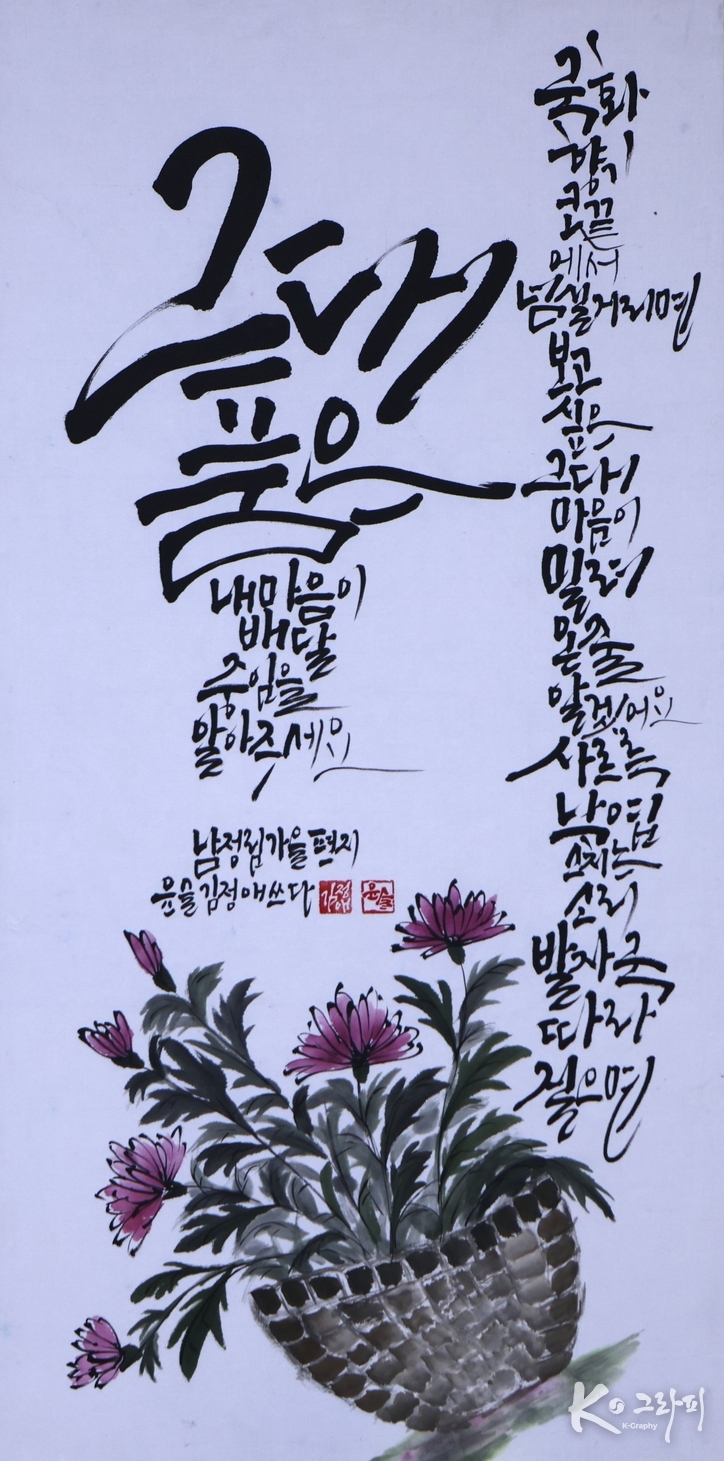 국화
향기
코끝
에서
넘실거리면
보고
싶은
그대
마음이
밀려
온줄
알겠어요
사르륵
낙엽
스치는
소리
발자국
따라
걸으면
그대
품은
내마음이
배달
중임을
알아주세요
남정림 가을편지
윤슬 김정애 쓰다
김정애
윤슬
K 그라피
K-Graphy